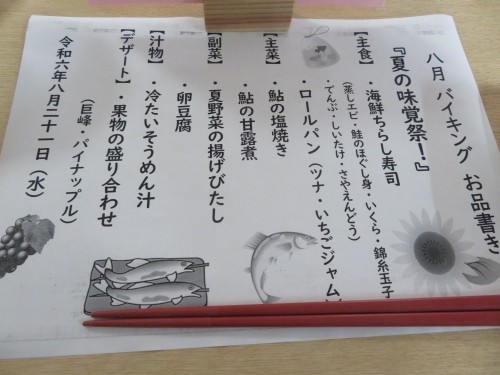 八月 バイキング お品書き
『夏の味覚祭！』
【主食】
・海鮮ちらし寿司
（蒸しエビ・鮭のほぐし身・いくら・錦糸玉子
・でんぶ・しいたけ・さやえんどう）
・ロールパン（ツナ・いちごジャム）
【主菜】
・鮎の塩焼き
・鮎の甘露煮
【副菜】
・夏野菜の揚げびたし
・卵豆腐
【汁物】
・冷たいそうめん汁
【デザート】
・果物の盛り合わせ
（巨峰・パイナップル）
令和六年八月二十一日（水）